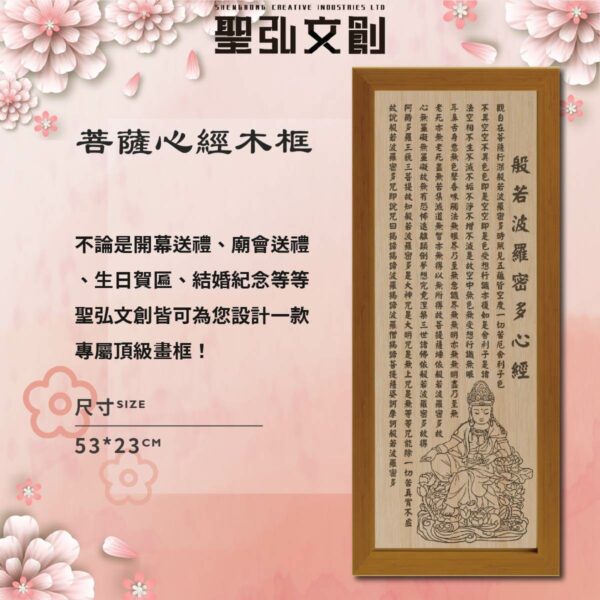 SHENGHONG CREATIVE INDUSTRIES LTD
聖弘文創
菩薩心經木框
不論是開幕送禮、廟會送禮
、生日賀匾、結婚紀念等等
聖弘文創皆可為您設計一款
專屬頂級畫框！
尺寸SIZE
53*23CM
般若波羅密多心經
觀自在菩薩行深般若波羅密多時照見五蘊皆空度一切苦厄舍利子色
不異空空不異色色即是空空即是色受想行識亦復如是舍利子是諸
法空相不生不滅不垢不淨不增不減是故空中無色無受想行識無眼
耳鼻舌身意無色聲香味觸法無眼界乃至無意識界無無明亦無無明盡乃至無
老死亦無老死盡無苦集滅道無智亦無得以無所得故菩提薩埵依般若波羅密多故
心無罣礙無罣礙故無有恐怖遠離顛倒夢想究竟涅槃三世諸佛依般若波羅密多故得
阿耨多羅三藐三菩提故知般若波羅密多是大神咒是大明咒是無上咒是無等等咒能除一切苦真實不虛
故說般若波羅密多咒即說咒曰揭諦揭諦波羅揭諦波羅僧揭諦菩提薩婆訶摩訶般若波羅密多